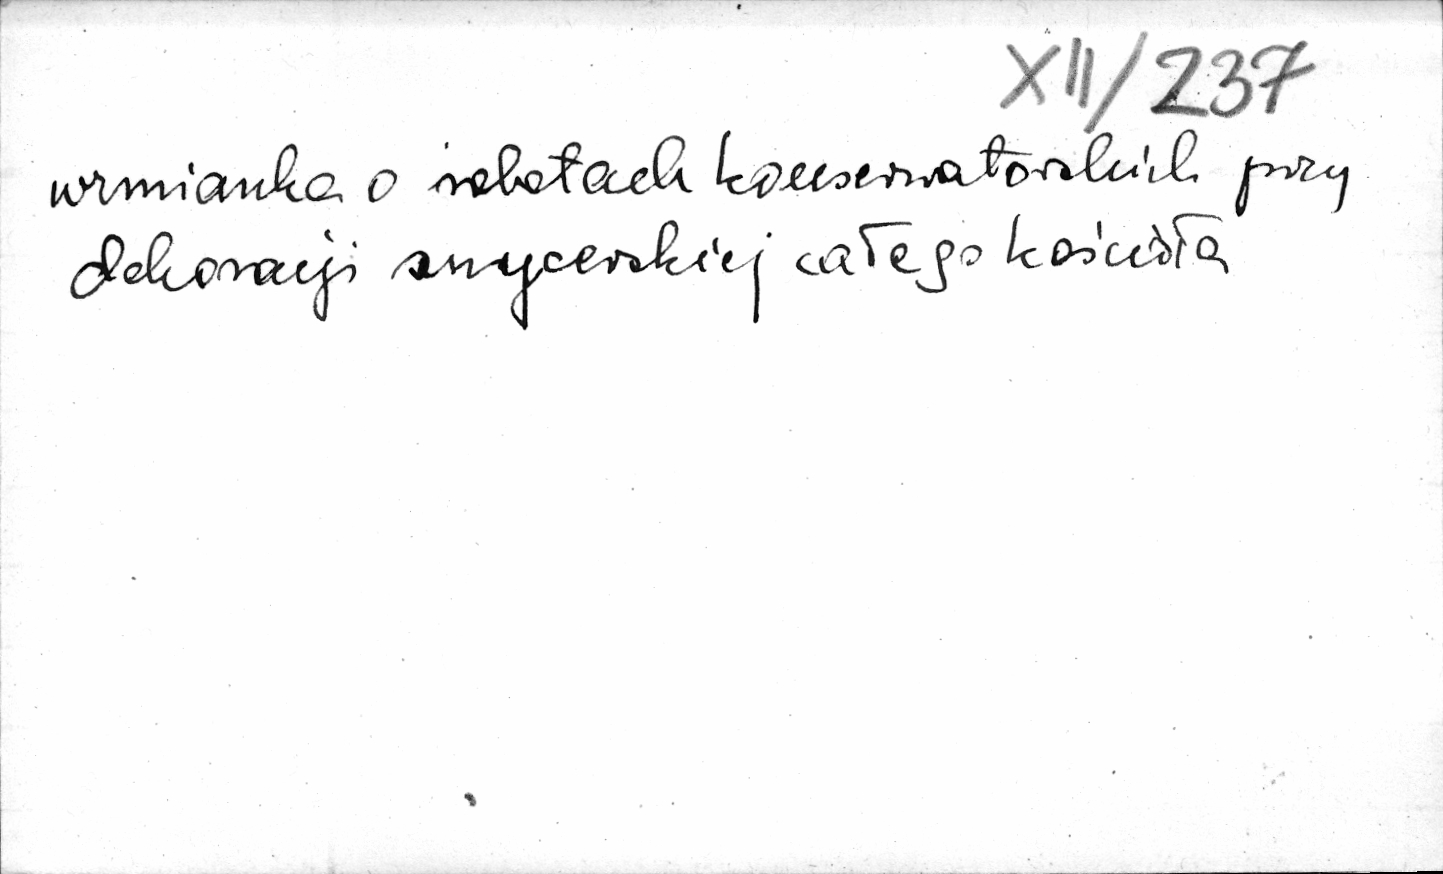 XII/237
wzmianka o robotach konserwatorskich przy
dekoracji snycerskiej całego kościoła